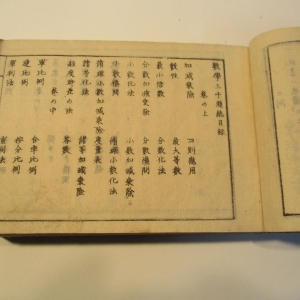 數學三千題總目録
卷の上
加減乘除 四則應用
數性 最大等數
最小倍數 分數化法
分數加減乘除 分數雜問
小數化法 小數加減乘除
小數雜問 循環小數化法
循環小數加減乘除 度量衡表
諸等化法 諸等加減乘除
經度時差の法 雜題
卷の中
單比例 合率比例
連比例 按分比例